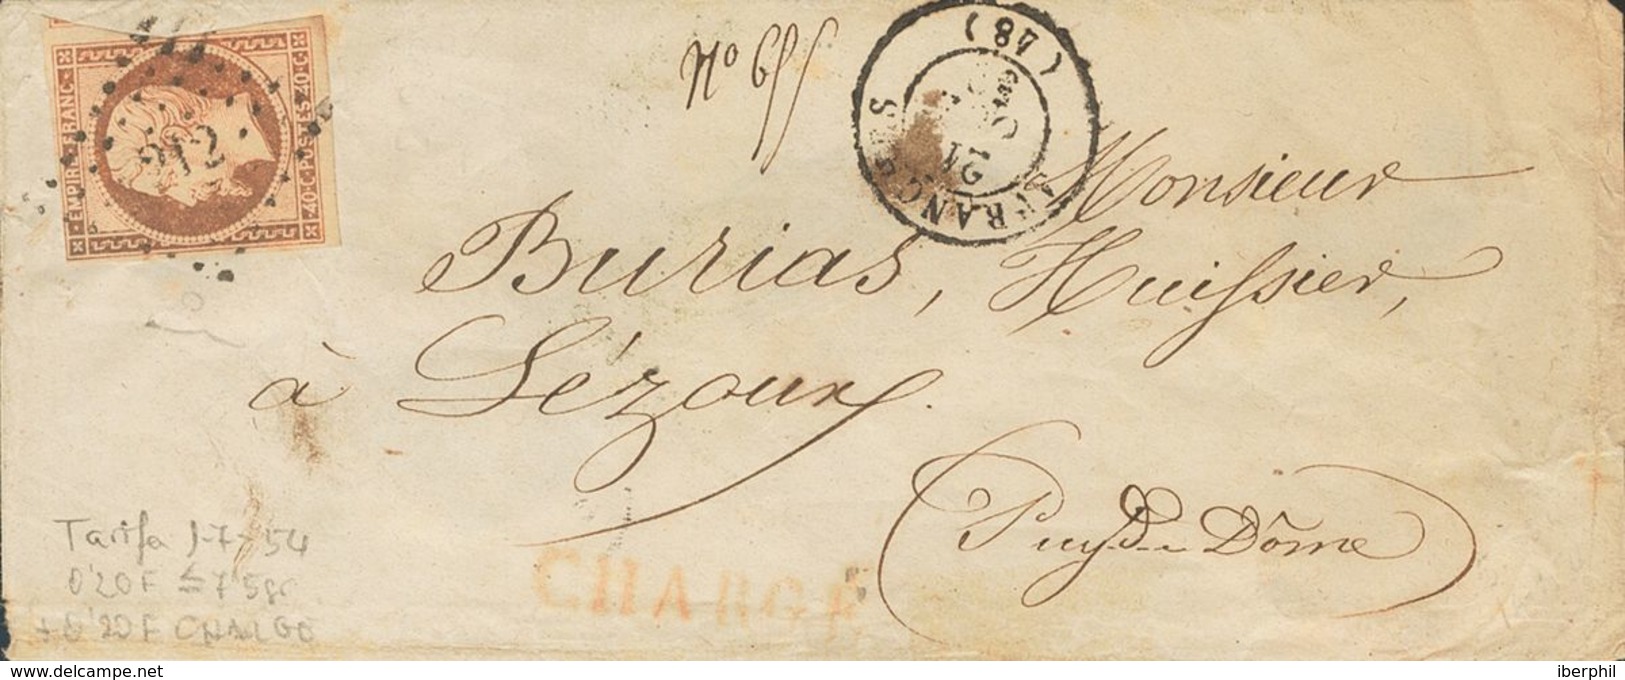 EMPIRE FRANC.
40·C·POSTES·40·C
Nº 655
(48)
21
Monsieur
Burias, Huissier,
à Lézoux.
Puy-de-Dôme
CHARGÉ
Tarifa 1-7-54
0'20F ≤ 7'5gr
+ 0'20F CHARGÉ
iberphil